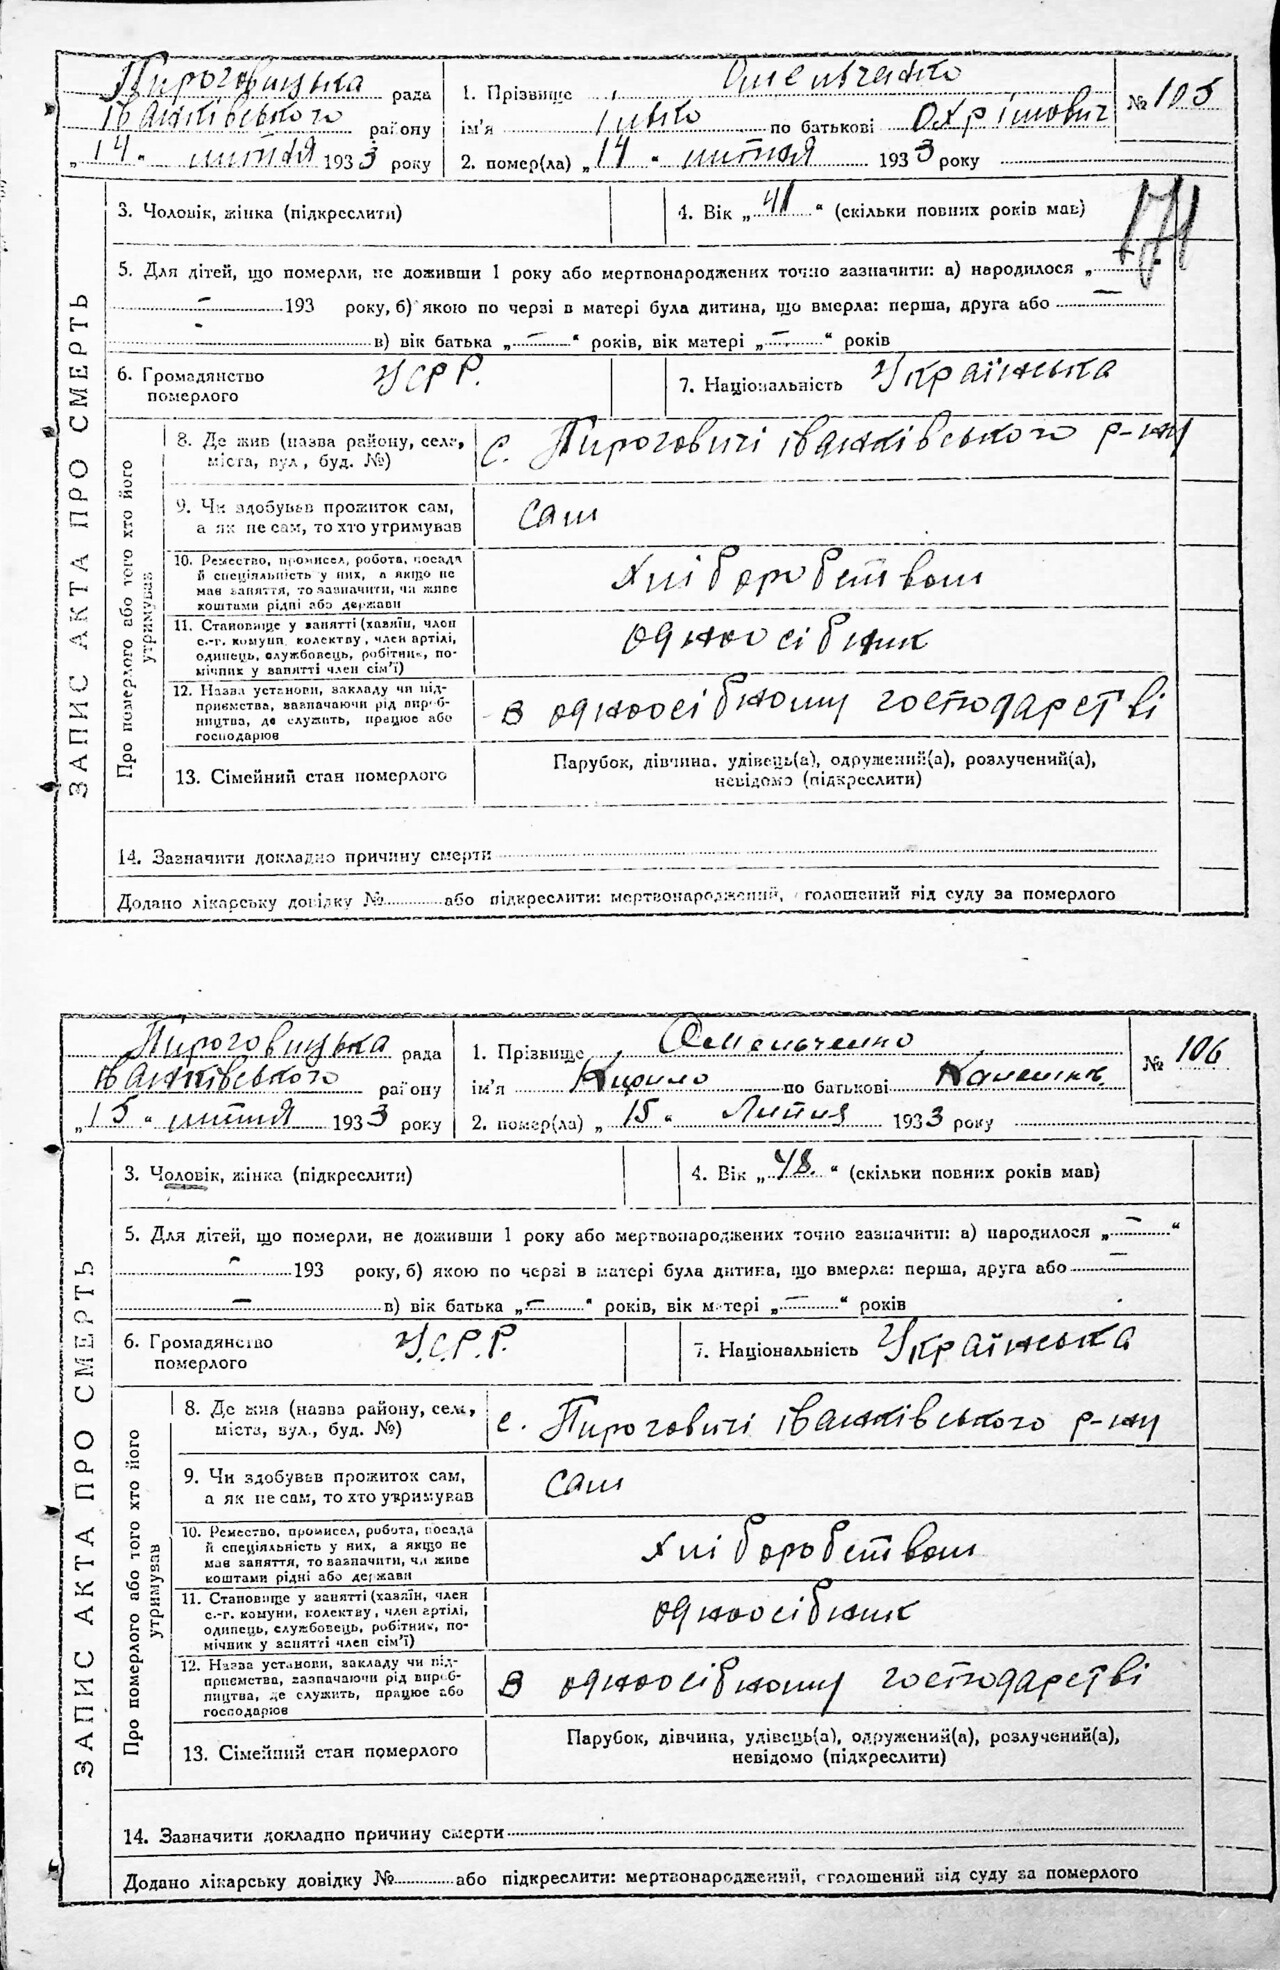 Пироговицька рада
Іванківського району
„14“ липня 1933 року
1. Прізвище Омельченко
ім'я Івко по батькові Охрімович
2. помер(ла) „14“ липня 1933 року
№ 105
171
3. Чоловік, жінка (підкреслити)
4. Вік „41“ (скільки повних років мав)
5. Для дітей, що померли, не доживши 1 року або мертвонароджених точно зазначити: а) народилося „—“
— 193 року, б) якою по черзі в матері була дитина, що вмерла: перша, друга або —
— в) вік батька „—“ років, вік матері „—“ років
6. Громадянство
померлого
УСРР.
7. Національність Українська
ЗАПИС АКТА ПРО СМЕРТЬ
Про померлого або того хто його
утримував
8. Де жив (назва району, села,
міста, вул., буд. №)
с. Пироговичі Іванківського р-ну
9. Чи здобував прожиток сам,
а як не сам, то хто утримував
сам
10. Ремество, промисел, робота, посада
й спеціяльність у них, а якщо не
мав заняття, то зазначити, чи живе
коштами рідні або держави
хліборобством
11. Становище у занятті (хазяїн, член
с.-г. комуни, колективу, член артілі,
одинець, службовець, робітник, по-
мічник у занятті член сім'ї)
одноосібник
12. Назва установи, закладу чи під-
приємства, зазначаючи рід вироб-
ництва, де служить, працює або
господарює
в одноосібному господарстві
13. Сімейний стан померлого
Парубок, дівчина, удівець(а), одружений(а), розлучений(а),
невідомо (підкреслити)
14. Зазначити докладно причину смерти
Додано лікарську довідку № або підкреслити: мертвонароджений, оголошений від суду за померлого
Пироговицька рада
Іванківського району
„15“ липня 1933 року
1. Прізвище Омельченко
ім'я Кирило по батькові
2. помер(ла) „15“ Липня 1933 року
№ 106
3. Чоловік, жінка (підкреслити)
4. Вік „48.“ (скільки повних років мав)
5. Для дітей, що померли, не доживши 1 року або мертвонароджених точно зазначити: а) народилося „—“
— 193 року, б) якою по черзі в матері була дитина, що вмерла: перша, друга або —
— в) вік батька „—“ років, вік матері „—“ років
6. Громадянство
померлого
У.С.Р.Р.
7. Національність Українська
ЗАПИС АКТА ПРО СМЕРТЬ
Про померлого або того хто його
утримував
8. Де жив (назва району, села,
міста, вул., буд. №)
с. Пироговичі Іванківського р-ну
9. Чи здобував прожиток сам,
а як не сам, то хто утримував
сам
10. Ремество, промисел, робота, посада
й спеціяльність у них, а якщо не
мав заняття, то зазначити, чи живе
коштами рідні або держави
хліборобством
11. Становище у занятті (хазяїн, член
с.-г. комуни, колективу, член артілі,
одинець, службовець, робітник, по-
мічник у занятті член сім'ї)
одноосібник
12. Назва установи, закладу чи під-
приємства, зазначаючи рід вироб-
ництва, де служить, працює або
господарює
в одноосібному господарстві
13. Сімейний стан померлого
Парубок, дівчина, удівець(а), одружений(а), розлучений(а),
невідомо (підкреслити)
14. Зазначити докладно причину смерти
Додано лікарську довідку № або підкреслити: мертвонароджений, оголошений від суду за померлого